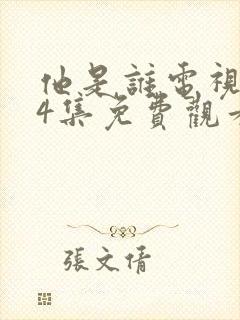 他是誰電視
4集免費觀
張文倩